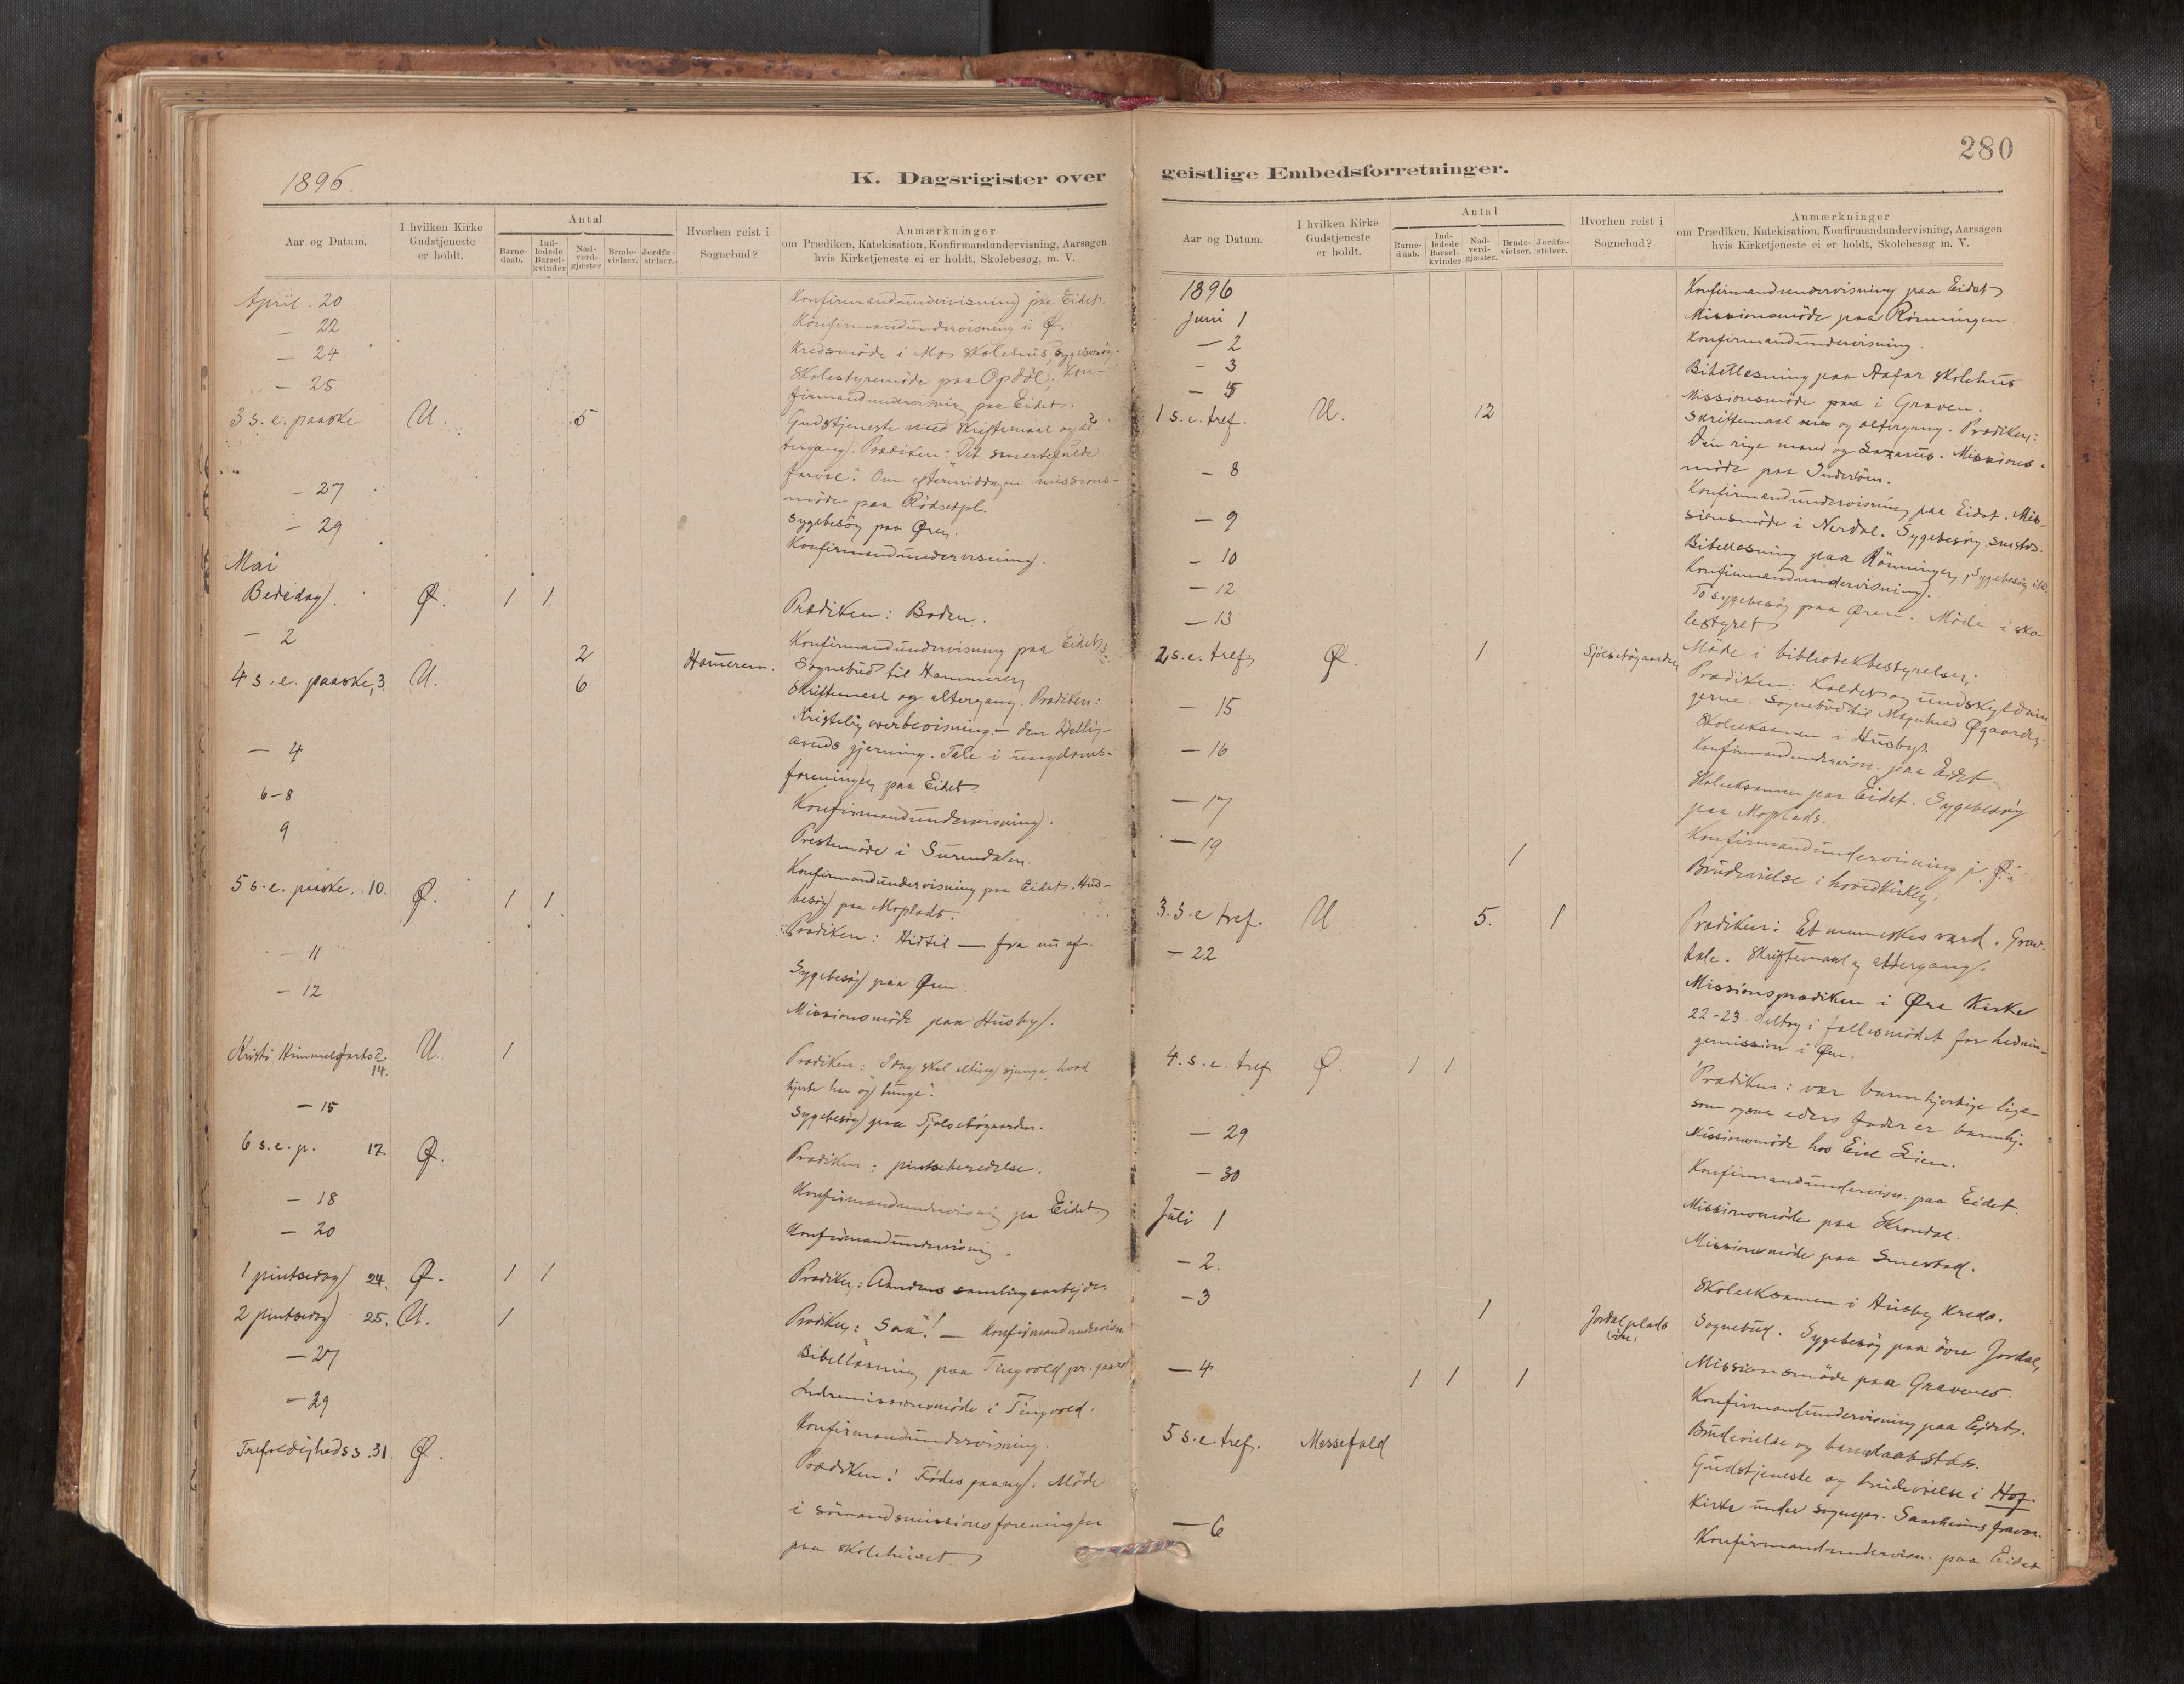 280
1896.
K. Dagsrigister over
geistlige Embedsforretninger.
Aar og Datum.
I hvilken Kirke Gudstjeneste er holdt.
Antal
Barne-daab.
Ind-ledede Barsel-kvinder
Nad-verd-gjæster
Brude-vielser.
Jordfæ-stelser.
Hvorhen reist i Sognebud?
Anmærkninger
om Prædiken, Katekisation, Konfirmandundervisning, Aarsagen
hvis Kirketjeneste ei er holdt, Skolebesøg, m. V.
April. 20 Konfirmandundervisning paa Eidet.
— 22 Konfirmandundervisning i Ø.
— 24 Kredsmöde i Mo skolehus, sygebesög.
— 25 Skolestyremöde paa Opdöl, Kon-
firmandundervisning paa Eidet.
3 s. e. paaske U. 5 Gudstjeneste med skriftemaal og al-
tergang. Prædiken: Det smertefulde
farvel. Om eftermiddagen missions-
möde paa Rödsetpl.
— 27 Sygebesög paa Øren.
— 29 Konfirmandundervisning.
Mai
Bededag. Ø. 1 1 Prædiken: Boden.
— 2 2 Hameren. Konfirmandundervisning paa Eidet
Sognebud til Hammeren
4 s. e. paaske, 3. U. 6 Skriftemaal og altergang. Prædiken:
Kristelig overbevisning — den Hellig-
aands gjerning. Tale i ungdoms-
foreningen paa Eidet.
— 4 Konfirmandundervisning.
6-8 Prestemöde i Surendalen.
9 Konfirmandundervisning paa Eidet. Hus-
besög paa Moplads.
5 s. e. paaske. 10. Ø. 1 1 Prædiken: Hidtil — fra nu af.
— 11 Sygebesög paa Øren.
— 12 Missionsmöde paa Husby.
Kristi Himmelfartsd. 14. U. 1 Prædiken: Idag skal alting sjunge, hvad
hjerte har og tunge".
— 15 Sygebesög paa Fjölsetögaarden.
6 s. e. p. 17. Ø. Prædiken: pintseberedelse.
— 18 Konfirmandundervisning pa Eidet
— 20 Konfirmandundervisning.
1 pintsedag 24. Ø. 1 1 Prædiken: Aandens samlingsarbejde.
2 pintsedag 25. U. 1 Prædiken: Saa! — Konfirmandundervisn
— 27 Bibellæsning paa Tingvold pr. gaard
— 29 Indremissionsmöde i Tingvold.
Konfirmandundervisning.
Trefoldigheds s. 31. Ø. Prædiken: Födes paany. Möde
i sömandsmissionsforeningen
paa skolehuset.
Aar og Datum.
I hvilken Kirke Gudstjeneste er holdt.
Antal
Barne-daab.
Ind-ledede Barsel-kvinder
Nad-verd-gjæster.
Brude-vielser.
Jordfæ-stelser.
Hvorhen reist i Sognebud?
Anmærkninger
om Prædiken, Katekisation, Konfirmandundervisning, Aarsagen
hvis Kirketjeneste ei er holdt, Skolebesøg m. V.
1896
Juni 1 Konfirmandundervisning paa Eidet
Missionsmöde paa Rönningen.
— 2 Konfirmandundervisning.
— 3 Bibellesning paa Aafar skolehus
— 5 Missionsmöde paa i Graven.
1 s. e. tref. U. 12 Skriftemaal og altergang. Prædiken:
Den rige mand og Lazarus. Missions-
möde paa Indersöen.
— 8 Konfirmandundervisning paa Eidet. Mis-
sionsmöde i Nerdal. Sygebesög
— 9 Bibellesning paa Rönningen, Sygebesög
— 10 Konfirmandundervisning.
— 12 To sygebesög paa Øren. Möde i sko-
lestyret
— 13 Möde i bibliotekbestyrelsen.
2 s. e. tref. Ø. 1 Prædiken: Kaldet og undskyldnin-
gerne. Sognebud til Øgaarden.
— 15 Skoleeksamen i Husby.
Konfirmandundervisn. paa Eidet
— 16 Skoleeksamen paa Eidet. Sygebesög
paa Moplads.
— 17 Konfirmandundervisning p. Ø.
— 19 1 Brudevielse i hovedkirken
3. s. e tref. U 5. 1 Prædiken: Et menneskes værd. Grav-
tale. Skriftemaal og altergang.
— 22 Missionsprædiken i Øre Kirke
22-23 deltog i fællesmödet for hednin-
gemission i Øre.
4. s. e. tref Ø. 1 1 Prædiken: vær barmhjertige lige-
som ogsaa eders fader er barmhj.
— 29 Missionsmöde hos Lien.
— 30 Konfirmandundervisn. paa Eidet.
Juli 1 Missionsmöde paa Skrondal.
— 2. Missionsmöde paa Smestad.
— 3 Skoleeksamen i Husby Kreds.
1 Jordalplads övre Sognebud. Sygebesög paa övre Jordal,
Missionsmöde paa Gravenes.
— 4 1 1 1 Konfirmandundervisning paa Ejdet.
Brudevielse og barnedaab
5 s. e. tref. Messefald Gudstjeneste og brudevielse i Hof
Kirke under sognepr. fravær.
— 6 Konfirmandundervisn. paa Eidet